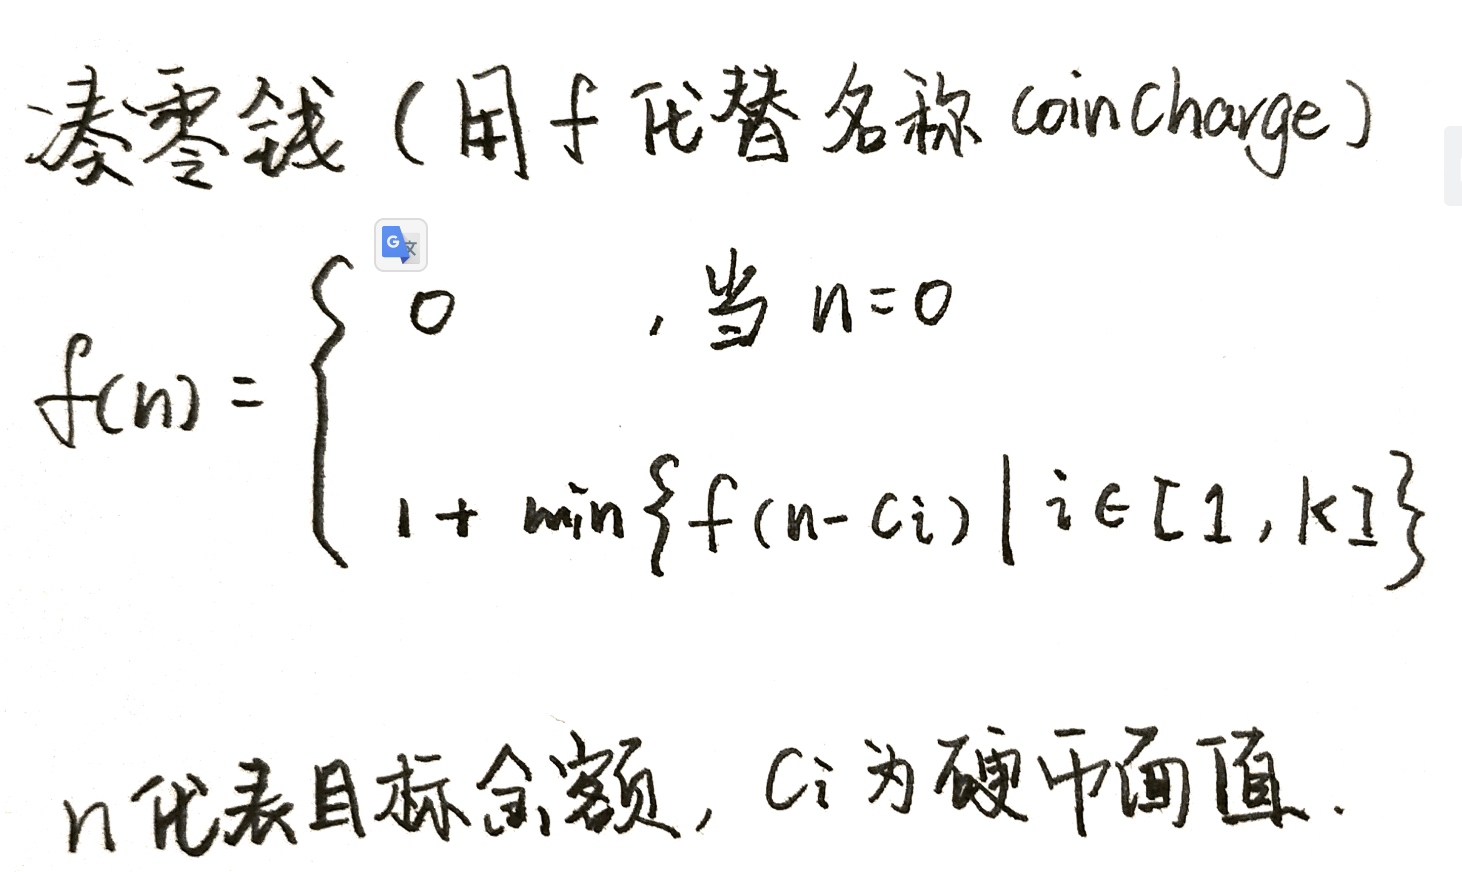 凑零钱（用f代替名称coinCharge）
f(n) = { 0 , 当 n=0
1 + min{f(n-ci) | i∈[1,k]}
n代表目标金额, ci为硬币面值.